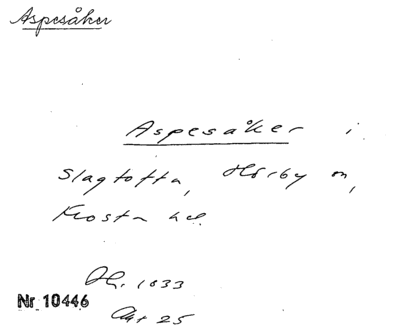 Aspesåker
Aspesåker i
Slagtofta, Hörby sn,
Frosta hd.
Hr. 1833
Nr 10446
Akt 25